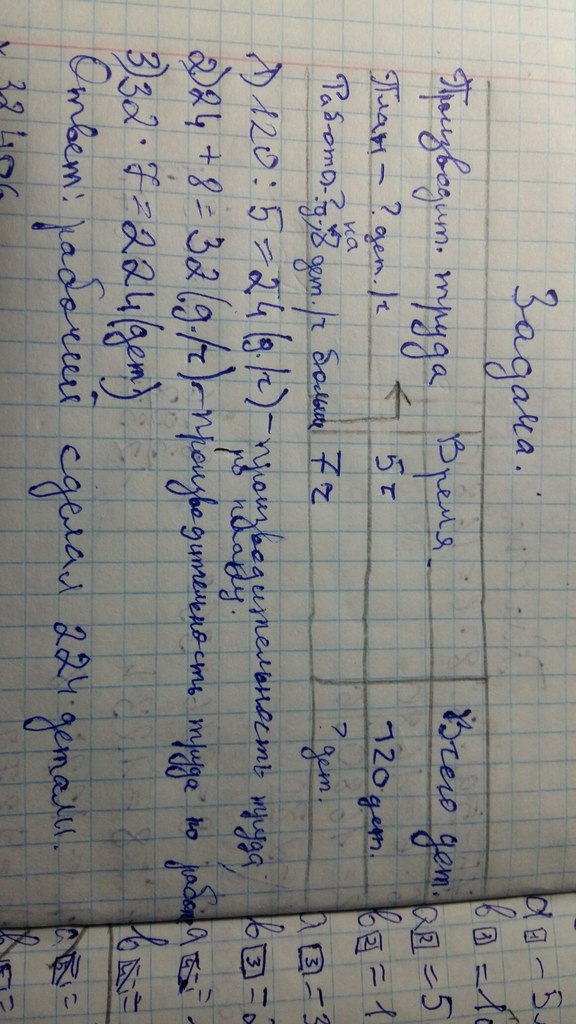 Задача.
Производит. труда Время Всего дет.
План - ? дет./ч 5ч 120 дет.
на
Работал-? 8 дет./ч больше 7ч ? дет.
1) 120 : 5 = 24 (д./ч) - производительность труда,
по плану.
2) 24 + 8 = 32 (д./ч) - производительность труда по работ
3) 32 · 7 = 224 (дет)
Ответ: рабочий сделал 224 детали.
32406
a 1 - 5
b 1 = 1
a 2 = 5
b 2 = 1
a 3 = 3
b 3 =